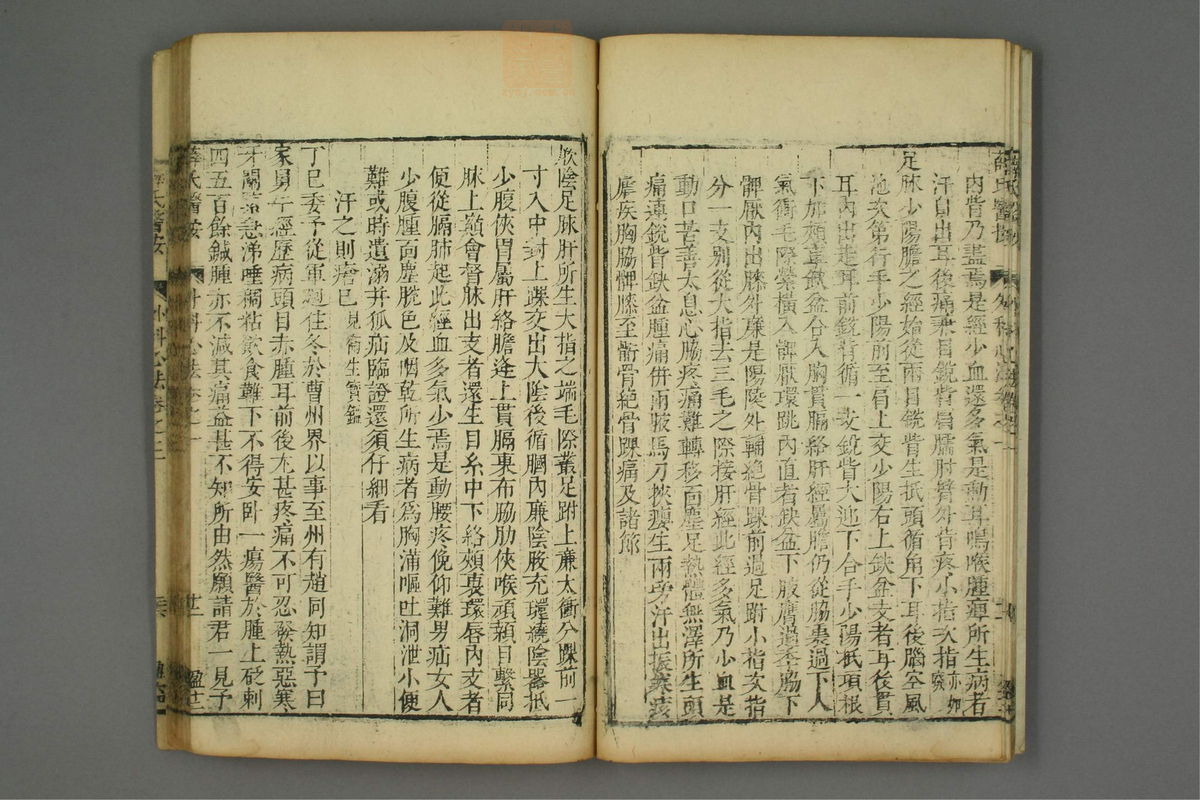 內眥乃盡焉是經少血還多氣是動耳鳴喉腫痹所生病者
汗自出耳後痛兼目銳眥肩臑肘臂外皆疼小指次指亦如
足脉少陽膽之經始從兩目銳眥生抵頭循角下耳後腦空風
池次第行手少陽前至肩上交少陽右上缺盆支者耳後貫
耳內出走耳前銳眥循一支銳眥大迎下合手少陽抵項根
下加頰車缺盆合入胸貫膈絡肝經屬膽仍從脇裏過下入
氣衝毛際縈橫入髀厭環跳內直者缺盆下腋膺過季脇下
髀厭內出膝外廉是陽陵外輔絕骨踝前過足跗小指次指
分一支別從大指去三毛之際接肝經此經多氣乃少血是
動口苦善太息心脇疼痛難轉移面塵足熱體無澤所生頭
痛連銳眥缺盆腫痛併兩腋馬刀挾癭生兩旁汗出振寒痎
瘧疾胸脇髀膝至䯒骨絕骨踝痛及諸節
厥陰足脉肝所生大指之端毛際叢足跗上廉太衝分踝前一
寸入中封上踝交出太陰後循膕內廉陰股充環繞陰器抵
少腹俠胃屬肝絡膽逢上貫膈裏布脇肋俠喉頏顙目繫同
脉上巔會督脉出支者還生目糸中下絡頰裏環唇內支者
便從膈肺起此經血多氣少焉是動腰疼俛仰難男疝女人
少腹腫面塵脫色及咽乾所生病者爲胸滿嘔吐洞泄小便
難或時遺溺并狐疝臨證還須仔細看
汗之則瘡已見衛生寶鑑
丁巳委予從軍過住冬於曹州界以事至州有趙同知謂予曰
家舅牛經歷病頭目赤腫耳前後尤甚疼痛不可忍發熱惡寒
牙關緊急涕唾稠粘飲食難下不得安卧一瘍醫於腫上砭刺
四五百餘鍼腫亦不減其痛益甚不知所由然願請君一見予
薛氏醫按 外科心法卷之二